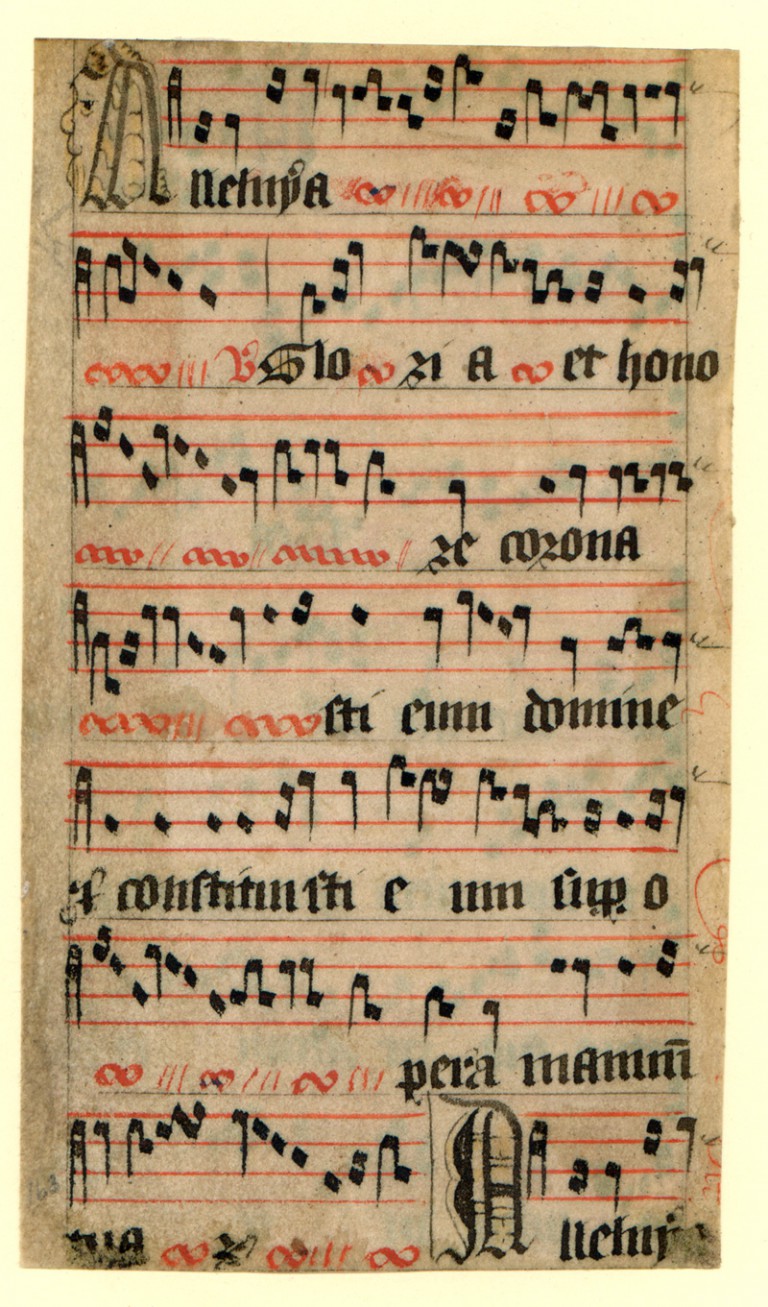 Alleluya
℣ Glo ri a et hono
re corona
sti eum domine
et constituisti e um sup o
pera manuū
tuaꝝ Alleluy